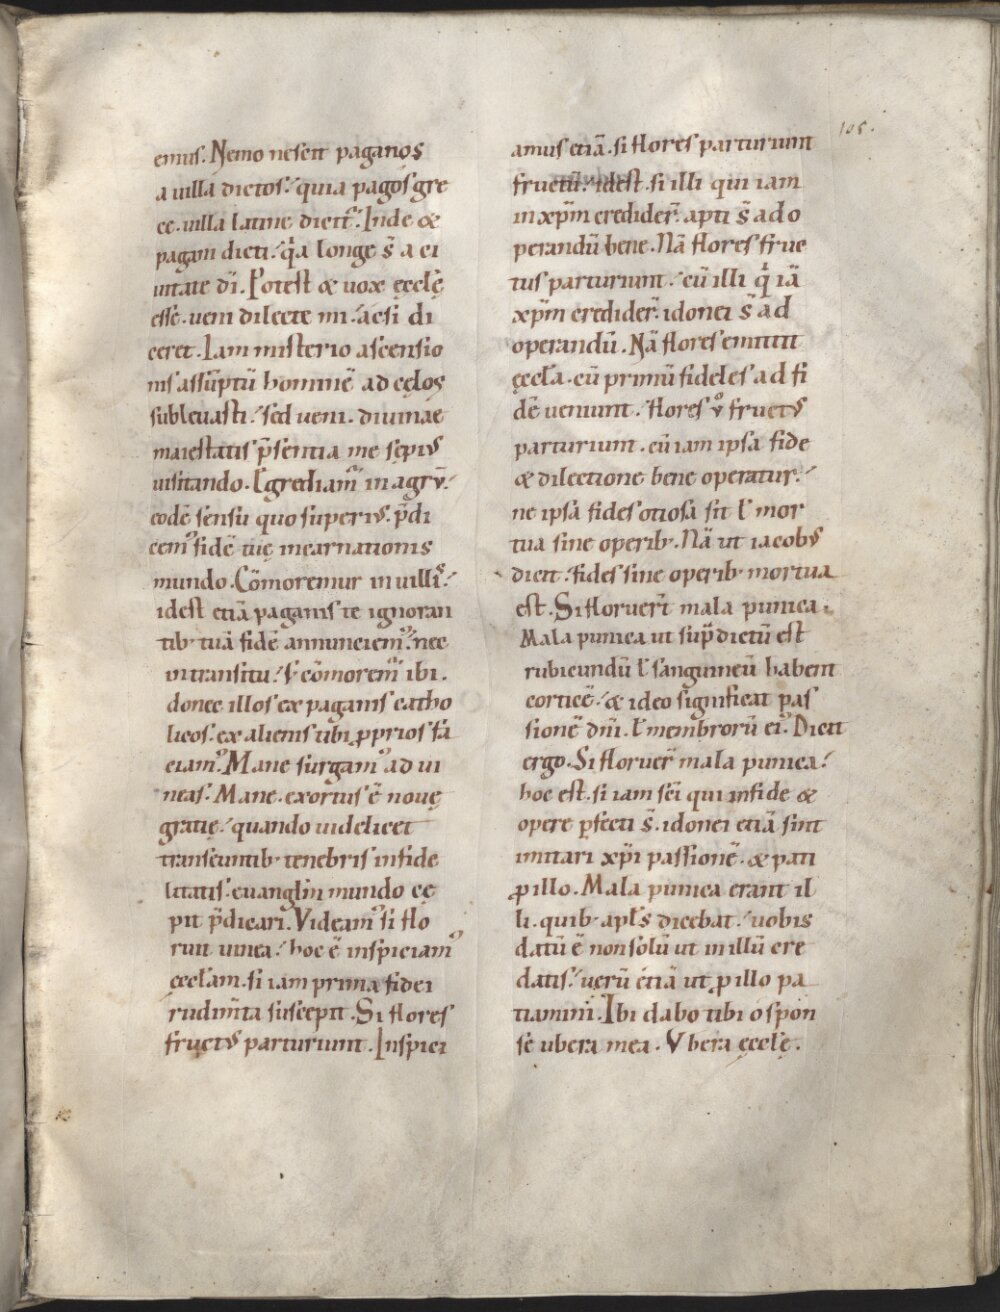 105.
emus. Nemo nescit paganos
a villa dictos. quia pagos gre
ce. uilla latine dicit᷒. Inde &
pagani dicti. q̊a longe s̄ a ci
uitate dī. Potest & uox ęcclę̄
esse. ueni dilecte mi. acsi di
ceret. Iam misterio ascensio
nis assūptū hominē ad cęlos
subleuasti. sed ueni. diuinae
maiestatis p̄sentia me sępiꝰ
uisitando. Egrediam᷒ in agrū.
eodē sensu quo superiꝰ. p̄di
cemꝰ fidē tuę incarnationis
mundo. Cōmoremur in uillis.
idest etiā paganis te ignoran
tib; tuā fidē annunciemꝰ. nec
in transitu. s; cōmorem᷒ ibi.
donec illos ex paganis catho
licos. ex alienis tibi ꝓprios fa
ciamꝰ. Mane surgamꝰ ad ui
neas. Mane. exortus ē nouę
gratię. quando uidelicet
transeuntib; tenebris infide
litatis. euangl̄m mundo cę
pit p̄dicari. Videamꝰ si flo
ruit uinea. hoc ē inspiciamꝰ
ęccl̄am. si iam prima fidei
rudim̄ta suscepit. Si flores
fructꝰ parturiunt. Inspici
amus etiā. si flores parturiunt
fructū. idest. si illi qui iam
in xp̄m credider̄. apti s̄ ad o
perandū bene. Nā flores fruc
tus parturiunt. cū illi q̊ iā
xp̄m credider̄. idonei s̄ ad
operandū. Nā flores emittit
ęccl̄a. cū primū fideles ad fi
dē ueniunt. flores v̊ fructꝰ
parturiunt. cū iam ipsa fide
& dilectione bene operatur.
ne ipsa fides otiosa sit ł mor
tua sine operib;. Nā ut iacobꝰ
dicit. fides sine operib; mortua
est. Si floruer̄t mala punica.
Mala punica ut sup̄dictū est
rubicundū ł sanguineū habent
corticē. & ideo significat pas
sionē dnī. ł membrorū eiꝰ. Dicit
ergo. Si floruer̄ mala punica.
hoc est. si iam sc̄i qui in fide &
opere p̱fecti s̄. idonei etiā sint
imitari xp̄i passionē. & pati
ꝓ illo. Mala punica erant il
li. quib; apl̄s dicebat. uobis
datū ē non solū ut in illū cre
datis. uerū etiā ut ꝓ illo pa
tiamini. Ibi dabo tibi o spon
se ubera mea. Vbera ęcclę.